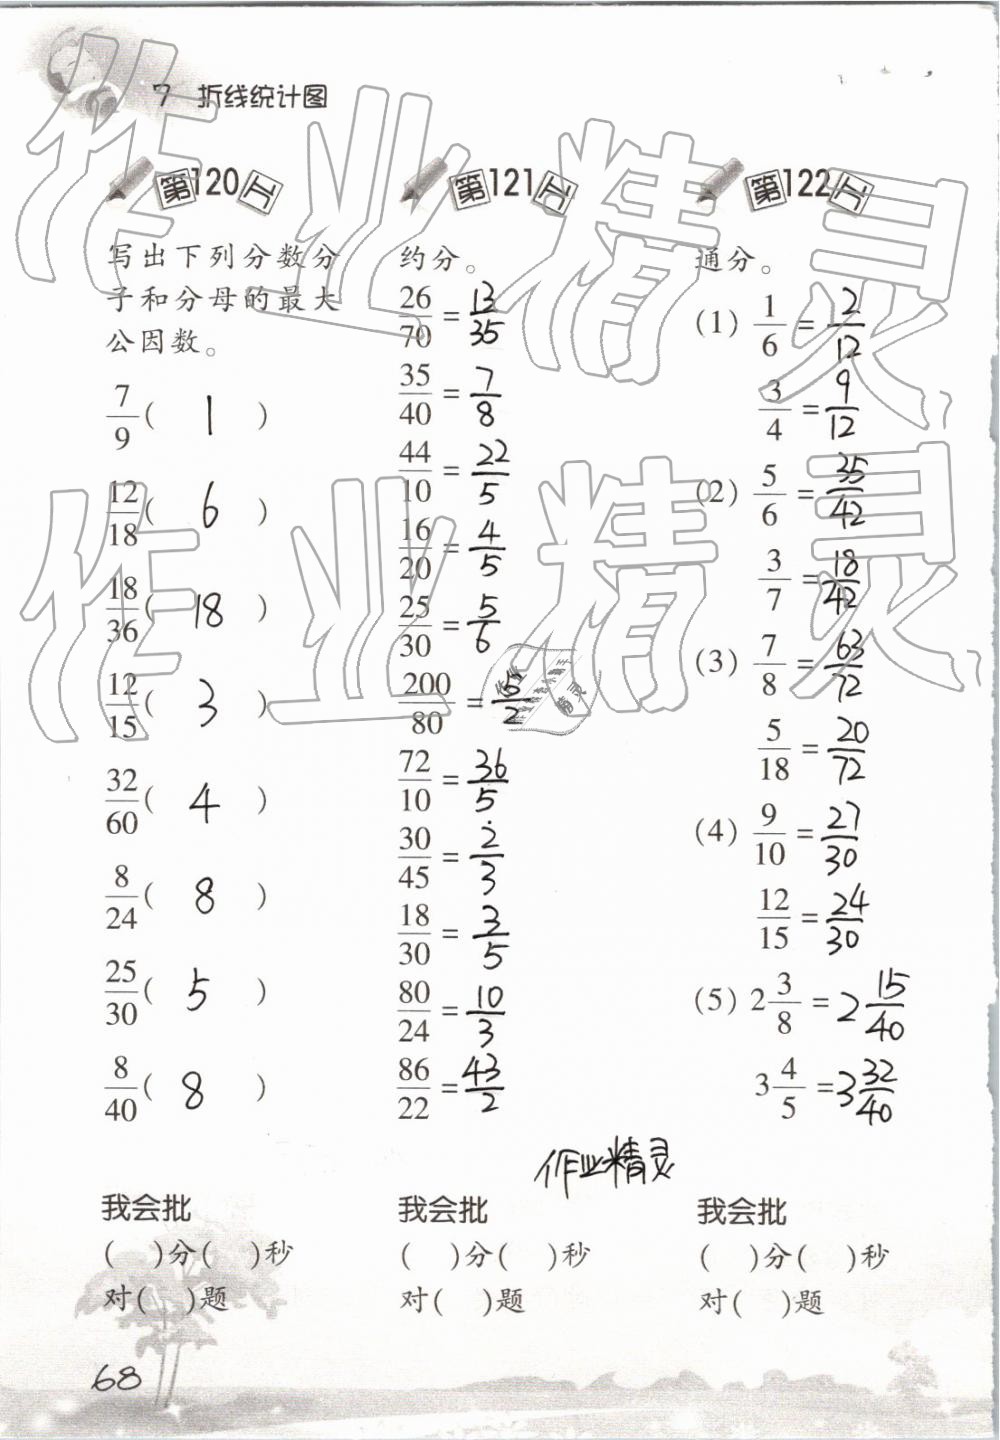 7 折线统计图
第120关
写出下列分数分
子和分母的最大
公因数。
7/9( 1 )
12/18( 6 )
18/36( 18 )
12/15( 3 )
32/60( 4 )
8/24( 8 )
25/30( 5 )
8/40( 8 )
我会批
( )分( )秒
对( )题
第121关
约分。
26/70 = 13/35
35/40 = 7/8
44/10 = 22/5
16/20 = 4/5
25/30 = 5/6
200/80 = 5/2
72/10 = 36/5
30/45 = 2/3
18/30 = 3/5
80/24 = 10/3
86/22 = 43/2
我会批
( )分( )秒
对( )题
第122关
通分。
(1) 1/6 = 2/12
3/4 = 9/12
(2) 5/6 = 35/42
3/7 = 18/42
(3) 7/8 = 63/72
5/18 = 20/72
(4) 9/10 = 27/30
12/15 = 24/30
(5) 2 3/8 = 2 15/40
3 4/5 = 3 32/40
作业精灵
我会批
( )分( )秒
对( )题
68
作业精灵
作业精灵